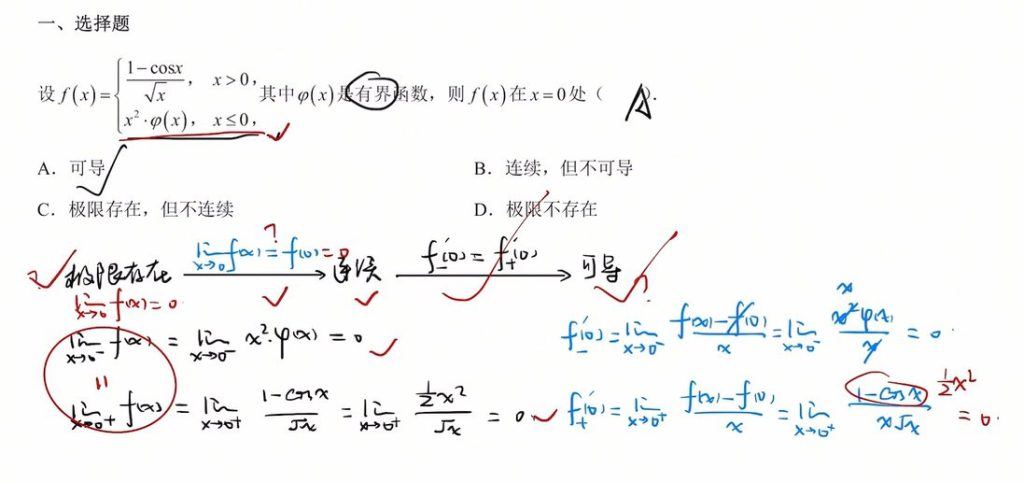 一、选择题
设 f(x)= { (1-cosx)/√x, x>0, x²·φ(x), x≤0, 其中φ(x)是有界函数，则 f(x)在 x=0处（ A ）.
A．可导 B．连续，但不可导
C．极限存在，但不连续 D．极限不存在
极限存在 lim x→0 f(x) = f(0) = 0 ? 连续 f'₋(0) = f'₊(0) 可导 ?
lim x→0 f(x) = 0
lim x→0⁻ f(x) = lim x→0⁻ x²·φ(x) = 0 f'₋(0) = lim x→0⁻ (f(x)-f(0))/x = lim x→0⁻ x²φ(x)/x = 0 x
=
lim x→0⁺ f(x) = lim x→0⁺ (1-cosx)/√x = lim x→0⁺ (½x²)/√x = 0 f'₊(0) = lim x→0⁺ (f(x)-f(0))/x = lim x→0⁺ (1-cosx)/(x√x) ½x² = 0.